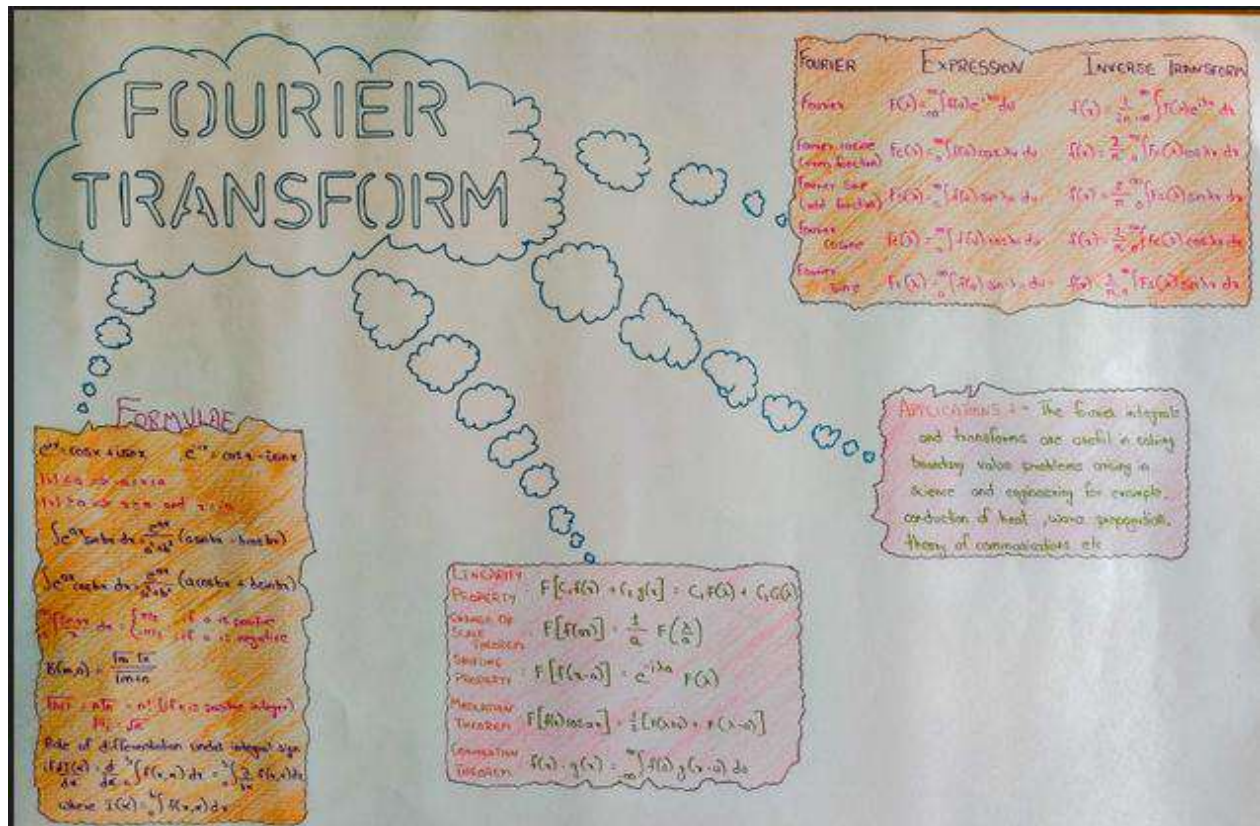 FOURIER
TRANSFORM
FOURIER EXPRESSION INVERSE TRANSFORM
Fourier F(λ) = ∞ -∞ ∫ f(u) e^-iλu du f(x) = 1/2π ∞ -∞ ∫ F(λ) e^iλx dλ
Fourier cosine
(even function) Fc(λ) = ∞ 0 ∫ f(u) cos λu du f(x) = 2/π ∞ 0 ∫ Fc(λ) cos λx dλ
Fourier Sine
(odd function) Fs(λ) = ∞ 0 ∫ f(u) sin λu du f(x) = 2/π ∞ 0 ∫ Fs(λ) sin λx dλ
Fourier
cosine Fc(λ) = ∞ 0 ∫ f(u) cos λu du f(x) = 2/π ∞ 0 ∫ Fc(λ) cos λx dλ
Fourier
sine Fs(λ) = ∞ 0 ∫ f(u) sin λu du f(x) = 2/π ∞ 0 ∫ Fs(λ) sin λx dλ
APPLICATIONS :- The fourier integrals
and transforms are useful in solving
boundary value problems arising in
science and engineering for example,
conduction of heat, wave propagation,
theory of communications etc
FORMULAE
e^ix = cosx + isinx e^-ix = cosx - isinx
|x| ≤ a => -a≤x≤a
|x| ≥ a => x≥a and x≤-a
∫e^ax sinbx dx = e^ax/a²+b² (asinbx - bcosbx)
∫e^ax cosbx dx = e^ax/a²+b² (acosbx + bsinbx)
∞ 0 ∫ sin ax/x dx = { π/2 if a is positive
-π/2 if a is negative
B(m,n) = ⌈m ⌈n / ⌈m+n
⌈n+1 = n⌈n = n! (if n is positive integer)
⌈1/2 = √π
Rule of differentiation under integral sign
where I(α) = ∫ f(x,α) dx
LINEARITY
PROPERTY : F[C₁f(x) + C₂g(x)] = C₁F(λ) + C₂G(λ)
CHANGE OF
SCALE
THEOREM : F[f(ax)] = 1/a F(λ/a)
SHIFTING
PROPERTY : F[f(x-a)] = e^-iλa F(λ)
MODULATION
THEOREM : F[f(x)cosax] = 1/2 [F(λ+a) + F(λ-a)]
CONVOLUTION
THEOREM : f(x) * g(x) = ∞ -∞ ∫ f(u) g(x-u) du